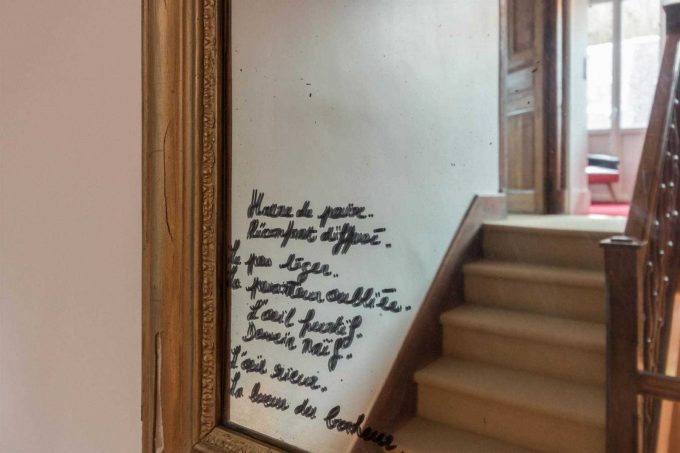 Havre de paix.
Réconfort diffusé.
Le pas léger.
La pesanteur oubliée.
L'œil furtif.
Dessin naïf.
L'œil rieur.
La lueur du bonheur.